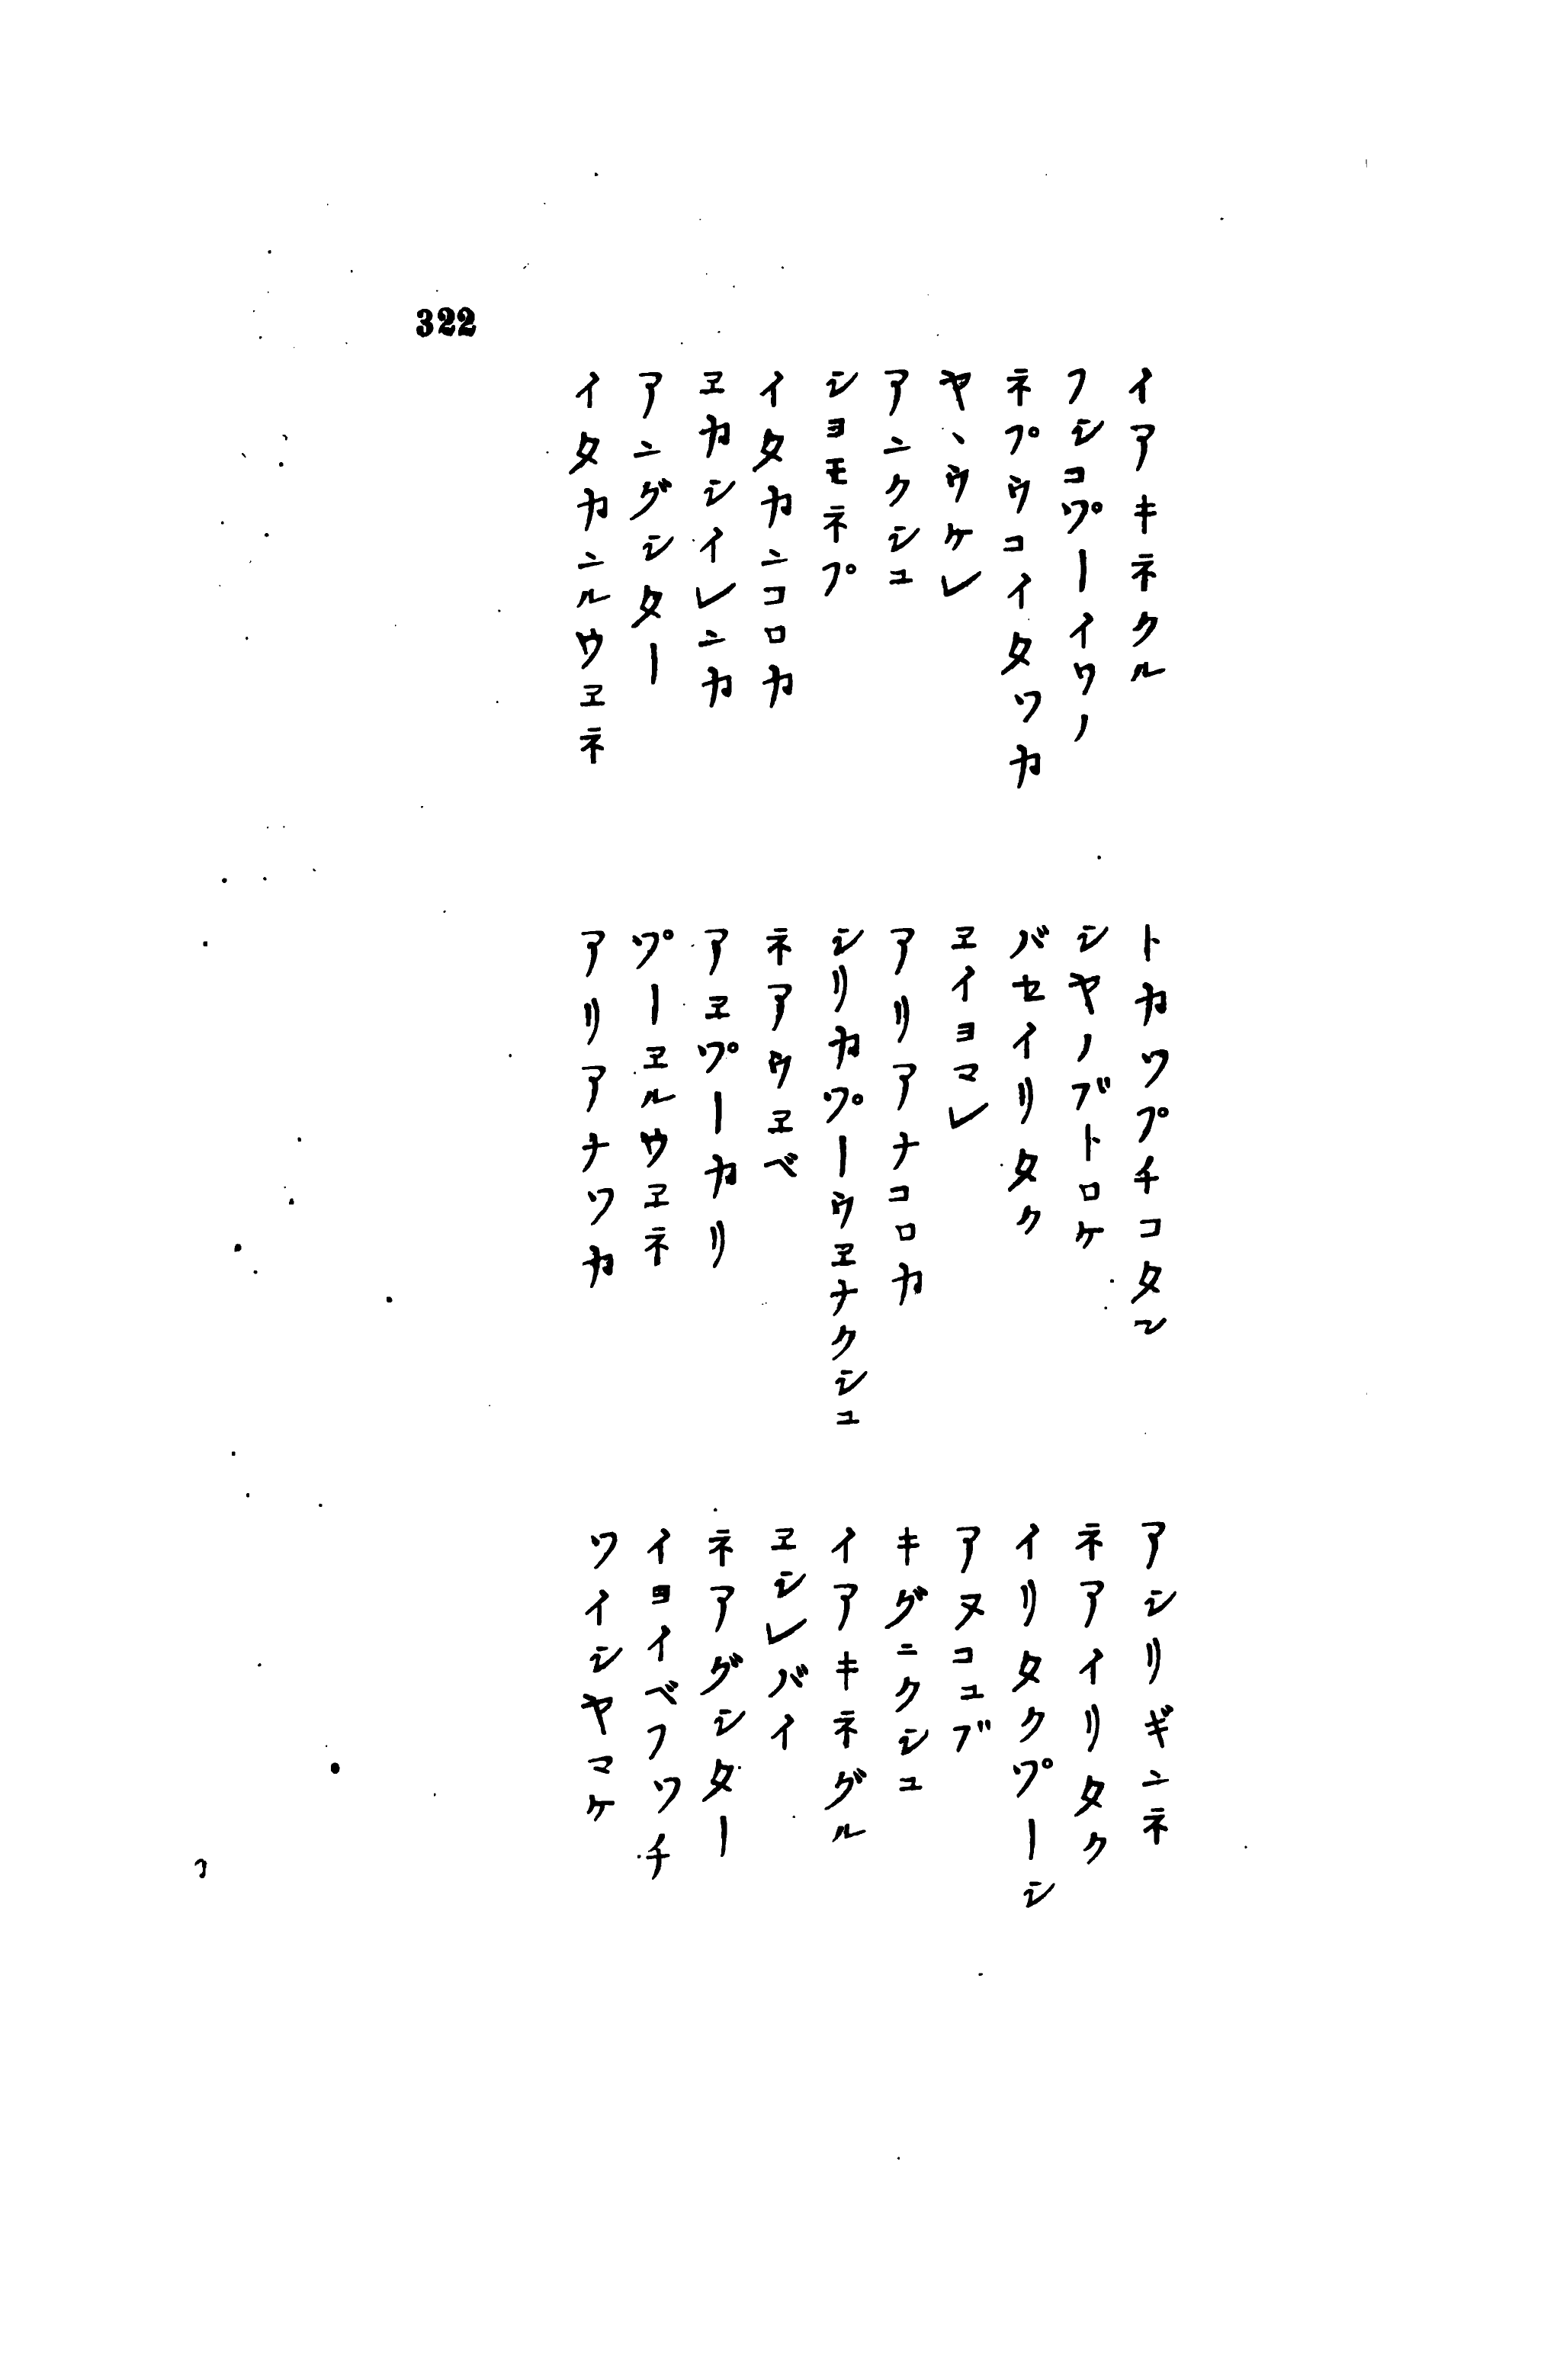 322
イアキネクル
フシコツ゚ーイワノ
ネプウコイタツカ
ヤヽウケレ
アンクシユ
シヨモネプ
イタカンコロカ
ヱカシイレンカ
アングシター
イタカンルウヱネ
トカツプチコタン
シヤノブトロケ
バセイリタク
ヱイヨマレ
アリアナコロカ
シリカツ゚ーウヱナクシユ
ネアウヱベ
アヱツ゚ーカリ
ツ゚ーヱルウヱネ
アリアナツカ
アシリギンネ
ネアイリタク
イリタクツ゚ーシ
アヌコユブ
キグニクシユ
イアキネグル
ヱシレバイ
ネアグシター
イヨイベフツチ
ツイシヤマケ